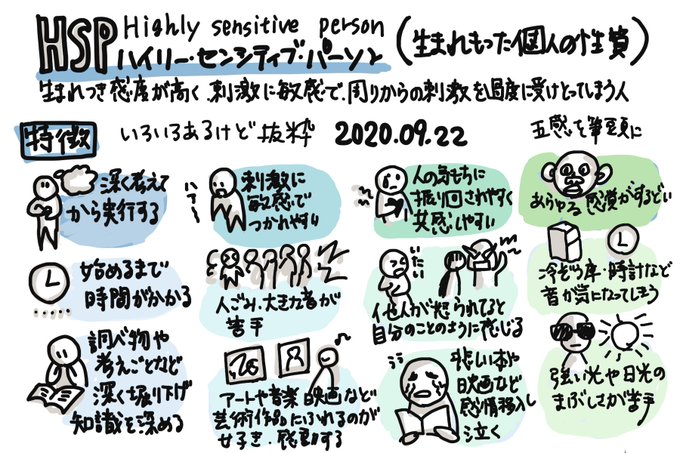 HSP Highly sensitive person
ハイリー・センシティブ・パーソン (生まれもった個人の性質)
生まれつき感度が高く 刺激に敏感で、周りからの刺激を過度に受けとってしまう人
特徴 いろいろあるけど抜粋 2020.09.22 五感を筆頭に
深く考えて
から実行する
始めるまで
時間がかかる
調べ物や
考えごとなど
深く堀り下げ
知識を深める
ハァ〜
刺激に
敏感で
つかれやすい
人ごみ、大きな音が
苦手
アートや音楽 映画など
芸術作品にふれるのが
好き・感動する
人の気もちに
振り回されやすく
共感しやすい
いたい
他人が怒られてると
自分のことのように感じる
悲しい本や
映画など
感情移入し
泣く
あらゆる感覚がするどい
冷ぞう庫・時計など
音が気になってしまう
強い光や日光の
まぶしさが苦手